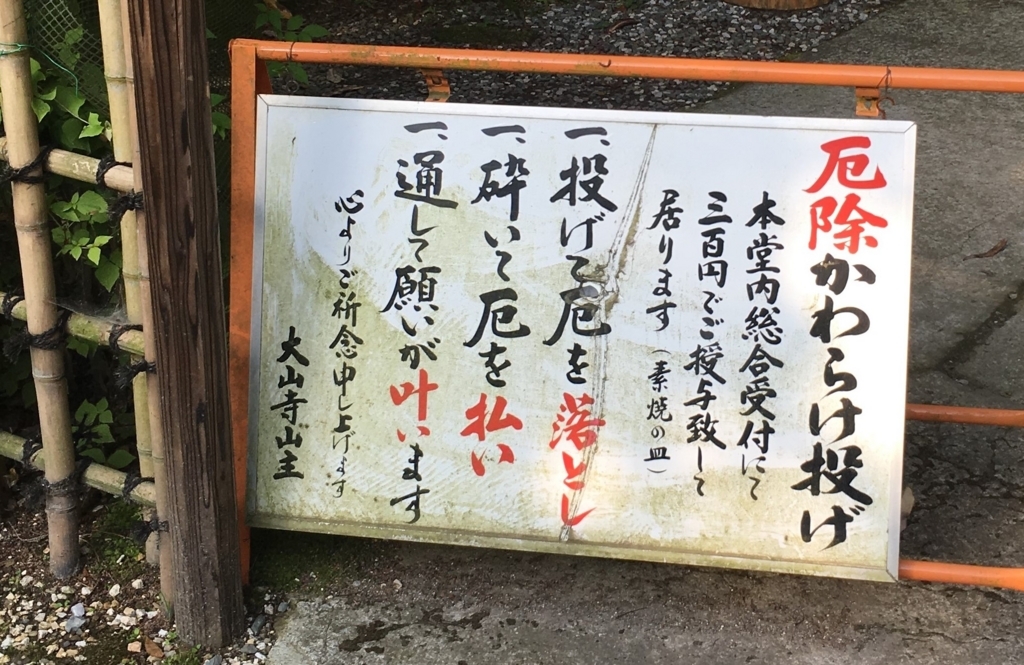 厄除かわらけ投げ
本堂内総合受付にて
三百円でご授与致して
居ります(素焼の皿)
一、投げて厄を落とし
一、砕いて厄を払い
一、通して願いが叶います
心よりご祈念申し上げます
大山寺山主